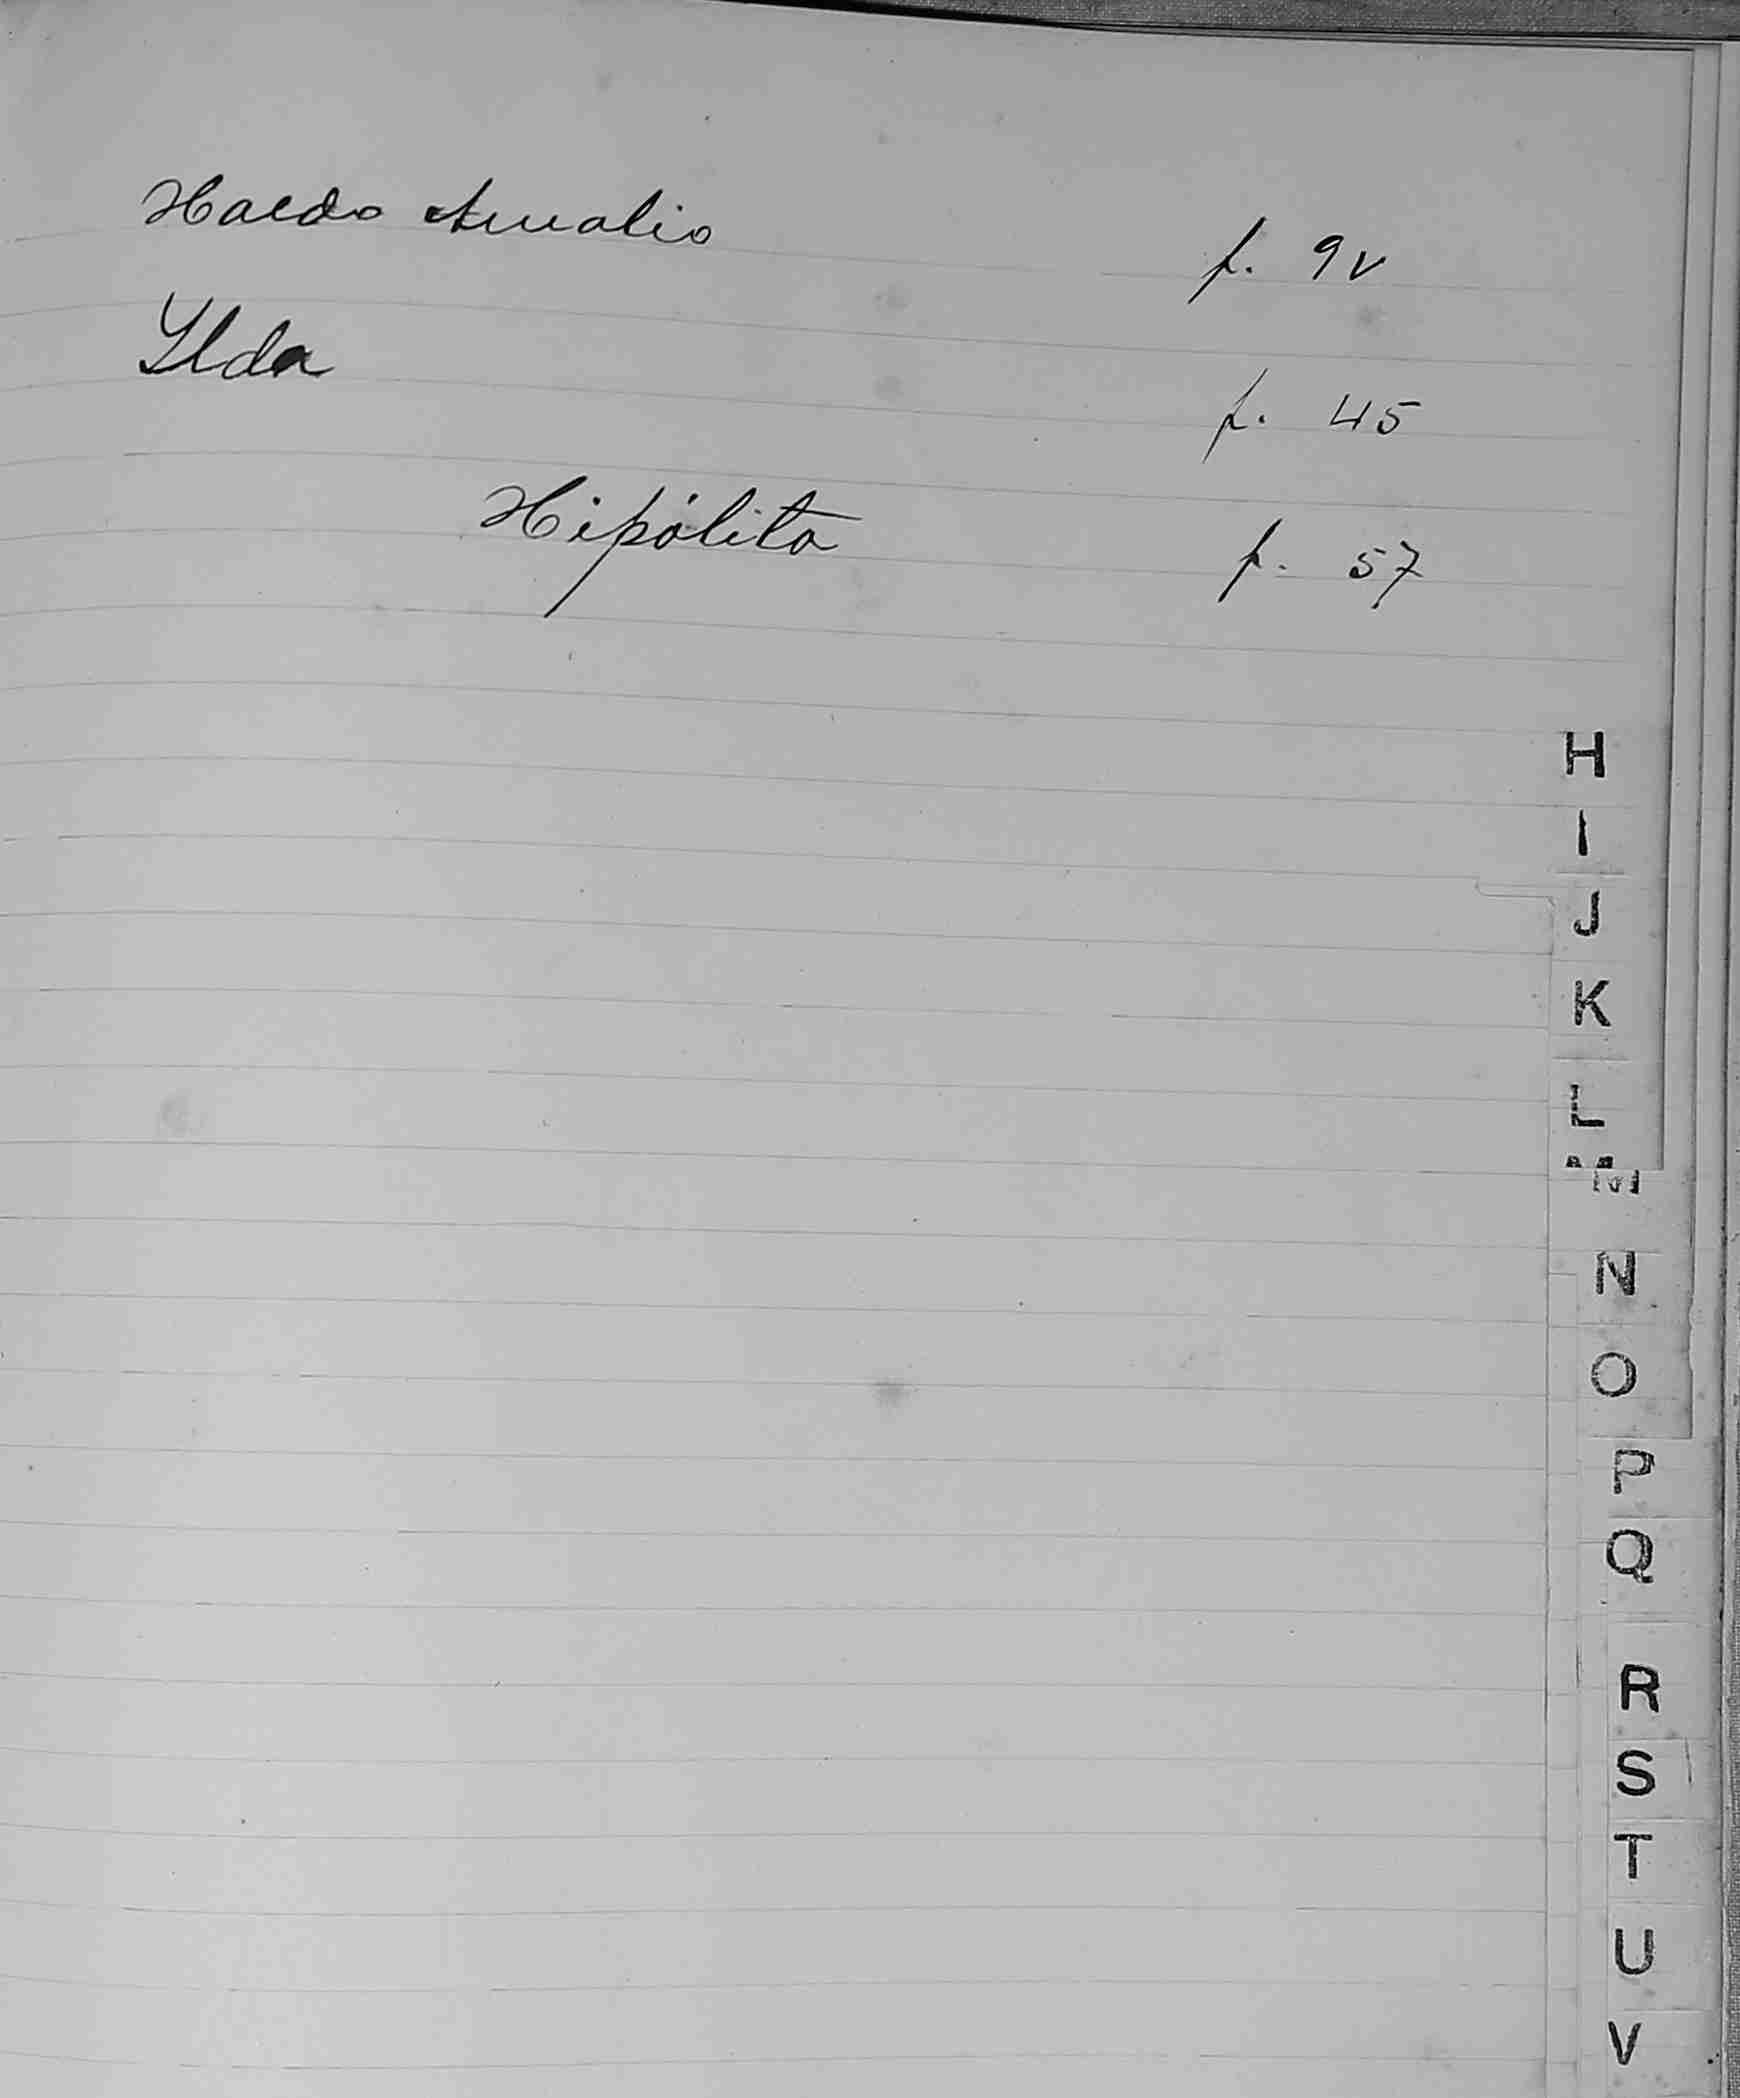 Haedo Amalio f. 9v
Ylda f. 45
Hipólito f. 57
H
I
J
K
L
M
N
O
P
Q
R
S
T
U
V